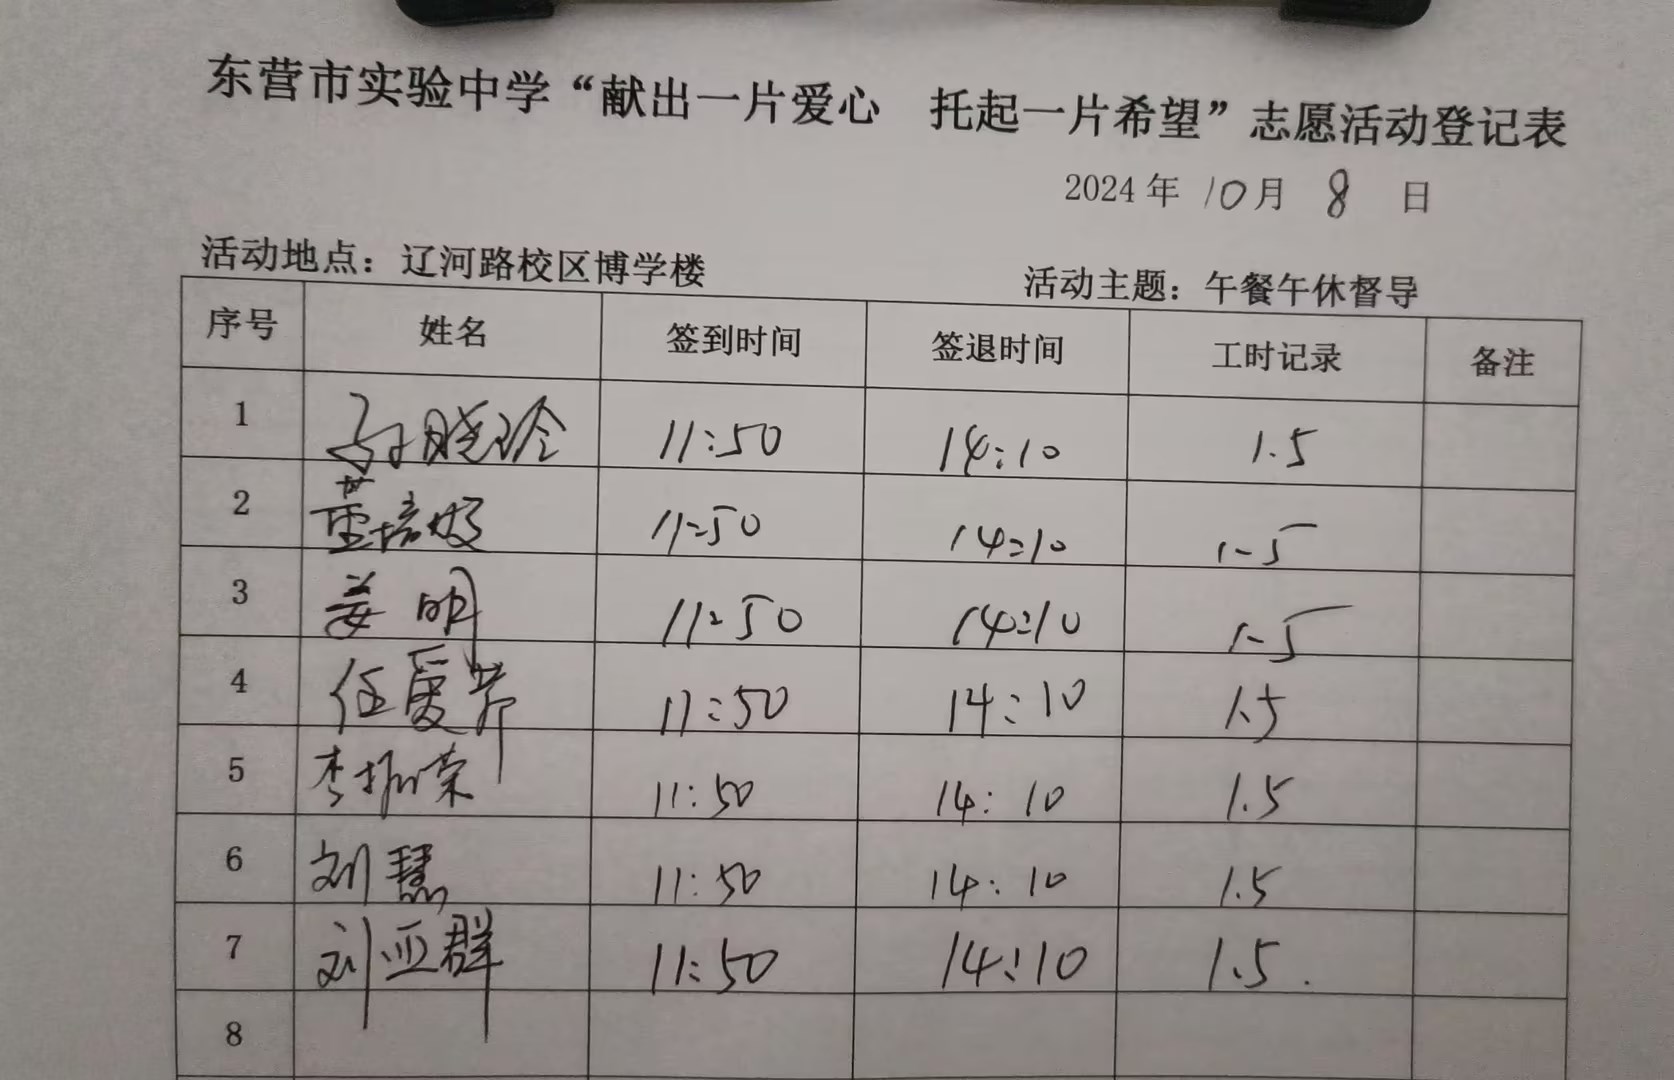 东营市实验中学“献出一片爱心 托起一片希望”志愿活动登记表
2024 年 10 月 8 日
活动地点：辽河路校区博学楼 活动主题：午餐午休督导
序号 姓名 签到时间 签退时间 工时记录 备注
1 晓玲 11:50 14:10 1.5
2 董培 11:50 14:10 1.5
3 姜明 11:50 14:10 1.5
4 任爱芹 11:50 14:10 1.5
5 李振荣 11:50 14:10 1.5
6 刘慧 11:50 14:10 1.5
7 刘亚群 11:50 14:10 1.5.
8